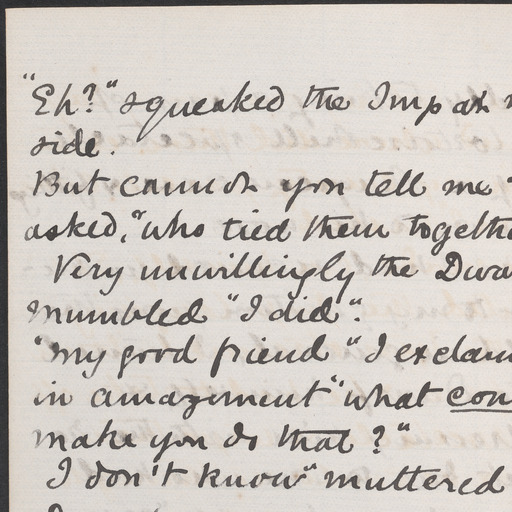 "Eh?" squeaked the Imp at
side.
But cannot you tell me
asked, "who tied them togeth
Very unwillingly the Dwa
mumbled "I did".
"My good friend "I exclaim
in amazement "what
make you do that?"
I don't know" muttered